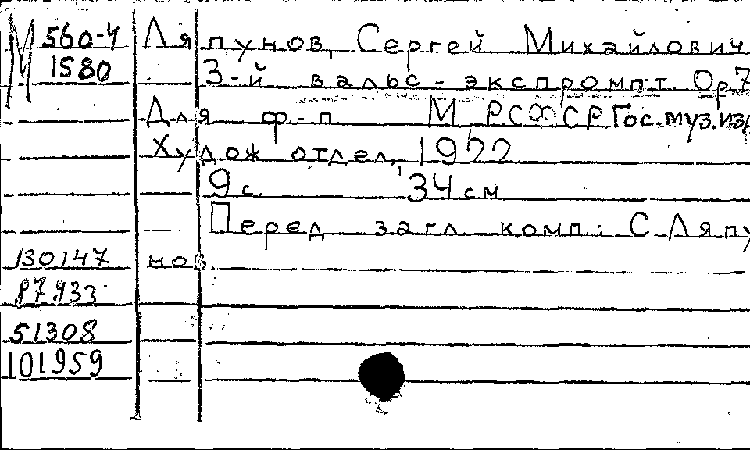 М 560-4 Ляпунов, Сергей Михайлович
1580 3-й вальс-экспромпт. Op 7
Для ф-п М РСФСР Гос.муз.изд
Худож отдел, 1922
9 с. 34 см
Перед загл. комп: С Ляпу
130147 нов
87933
51308
101959